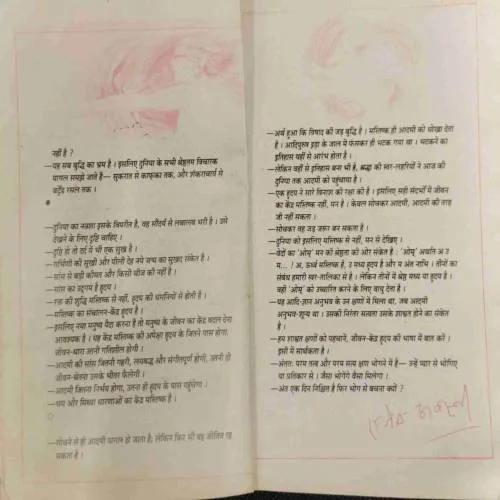 नहीं है ?
—यह सब बुद्धि का भ्रम है । इसलिए दुनिया के सभी श्रेष्ठतम विचारक
पागल समझे जाते हैं— सुकरात से काफ्का तक, और शंकराचार्य से
बर्ट्रेंड रसल तक ।
—दुनिया का नक्शा इसके विपरीत है, वह सौंदर्य से लबालब भरी है । उसे
देखने के लिए दृष्टि चाहिए ।
—दृष्टि हो तो दर्द में भी एक सुख है ।
—गर्भिणी की सुखी और पीली देह नये जन्म का सुखद संकेत है ।
—मांस से बड़ी कोमल और किसी चीज की नहीं है ।
—मांस का उद्गम है हृदय
—रक्त की शुद्धि मस्तिष्क से नहीं, हृदय की धमनियों से होती है ।
—मस्तिष्क का संचालन-केंद्र हृदय है ।
—इसलिए नया मनुष्य पैदा करना है तो मनुष्य के जीवन का केंद्र बदल देना
आवश्यक है । यह केंद्र मस्तिष्क की अपेक्षा हृदय के जितने पास होगा,
जीवन-धारा उतनी गतिशील होगी ।
—आदमी की सांस जितनी गहरी, लयबद्ध और संगीतपूर्ण होगी, उतनी ही
जीवन-चेतना उसके भीतर फैलेगी ।
—आदमी जितना निर्भय होगा, उतना ही हृदय के पास पहुंचेगा ।
—भय और मिथ्या धारणाओं का केंद्र मस्तिष्क है ।
—सोचने से ही आदमी पागल हो जाता है, लेकिन फिर भी वह जीवित रह
सकता है ।
—अर्थ हुआ कि विषाद की जड़ बुद्धि है । मस्तिष्क ही आदमी को धोखा देता
है । आदिपुरुष इड़ा के जाल में फंसकर ही भटक गया था । भटकने का
इतिहास यहीं से आरंभ होता है ।
—लेकिन वहीं से इतिहास बना भी है, श्रद्धा की स्वर-लहरियों ने आज की
दुनिया तक आदमी को पहुंचाया है ।
—एक हृदय ने सारे विनाश की रक्षा की है । इसलिए सही संदर्भों में जीवन
का केंद्र मस्तिष्क नहीं, मन है । केवल सोचकर आदमी, आदमी की तरह
जी नहीं सकता ।
—सोचकर वह जड़ जरूर बन सकता है ।
—दुनिया को इसलिए मस्तिष्क से नहीं, मन से देखिए ।
—वेदों का 'ओम्' मन की श्रेष्ठता की ओर संकेत है । 'ओम्' अर्थात अ उ
म... ! अ, ऊर्ध्व मस्तिष्क है, उ मध्य हृदय है और म अंत नाभि । तीनों का
संबंध हमारी स्वर-तालिका से है । लेकिन तीनों में श्रेष्ठ मध्य या हृदय है ।
वही 'ओम्' को उच्चारित करने के लिए वायु देता है ।
—यह आदि-ज्ञान अनुभव के उन क्षणों में मिला था, जब आदमी
अनुभव-शून्य था । उसकी निरंतर सत्यता उसके शाश्वत होने का संकेत
है ।
—हम शाश्वत क्षणों को पहचानें, जीवन-केंद्र हृदय की भाषा में बात करें ।
इसी में सार्थकता है ।
—अंततः परम तत्व और परम सत्य क्षण भोगने में है— उन्हें प्यार से भोगिए
या प्रतिकार से । जैसा भोगेंगे वैसा मिलेगा ।
—अंत एक दिन निश्चित है फिर भोग से बचना क्यों ?